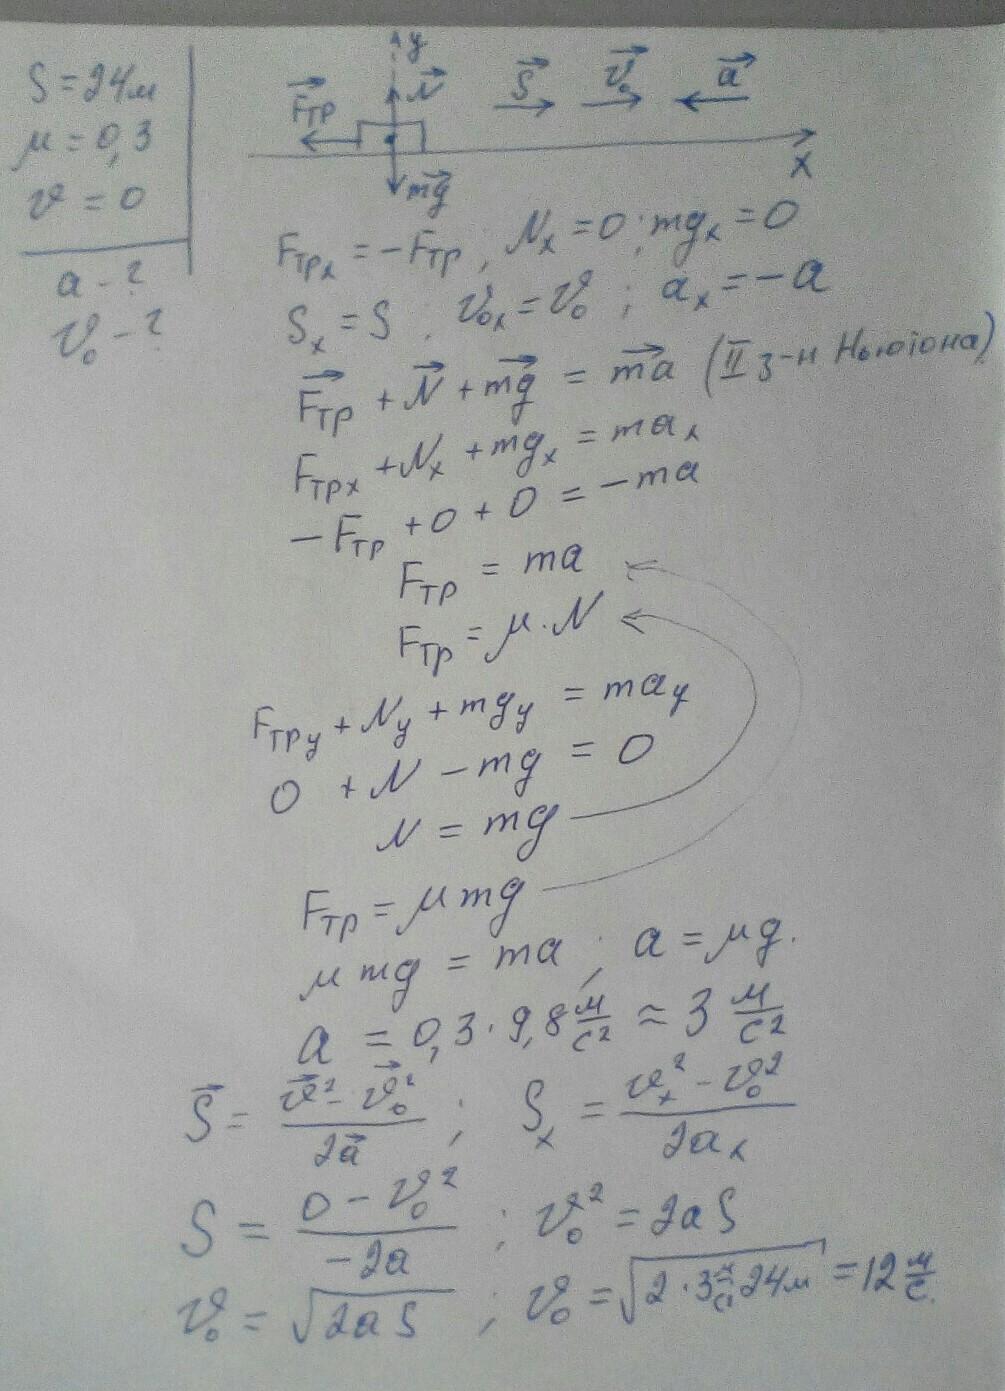 S = 24м
μ = 0,3
v = 0
a - ?
v₀ - ?
y
F⃗тр N⃗ S⃗ v⃗₀ a⃗
mg⃗ x
Fтрₓ = -Fтр ; Nₓ = 0 ; mgₓ = 0
Sₓ = S ; v₀ₓ = v₀ ; aₓ = -a
F⃗тр + N⃗ + mg⃗ = ma⃗ (II з-н Ньютона)
Fтрₓ + Nₓ + mgₓ = maₓ
-Fтр + 0 + 0 = -ma
Fтр = ma
Fтр = μ · N
Fтр y + Ny + mgy = may
0 + N - mg = 0
N = mg
Fтр = μmg
μmg = ma ; a = μg.
a = 0,3 · 9,8 м/с² ≈ 3 м/с²
S⃗ = (v⃗² - v⃗₀²)/(2a⃗) ; Sₓ = (vₓ² - v₀²)/(2aₓ)
S = (0 - v₀²)/(-2a) ; v₀² = 2aS
v₀ = √(2aS) ; v₀ = √(2 · 3 м/с² 24м) = 12 м/с.